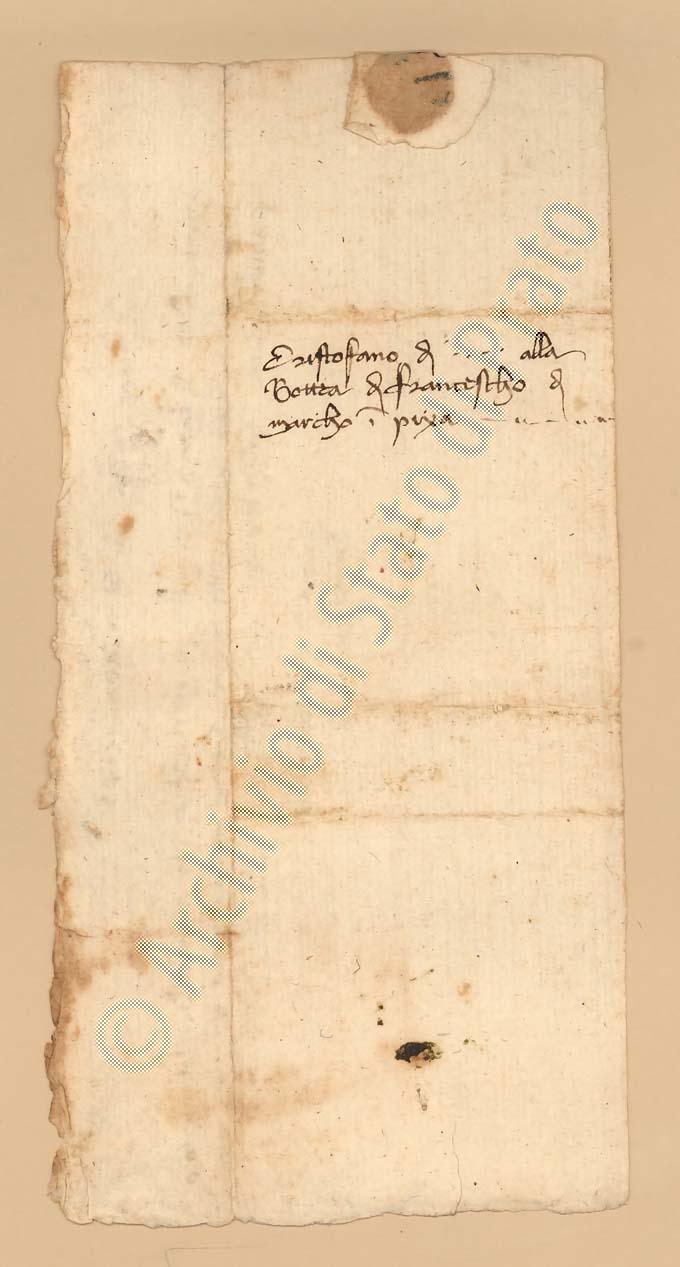 Cristofano d ..... alla
Bottega d francescho d
marcho ī pixa
© Archivio di Stato di Prato